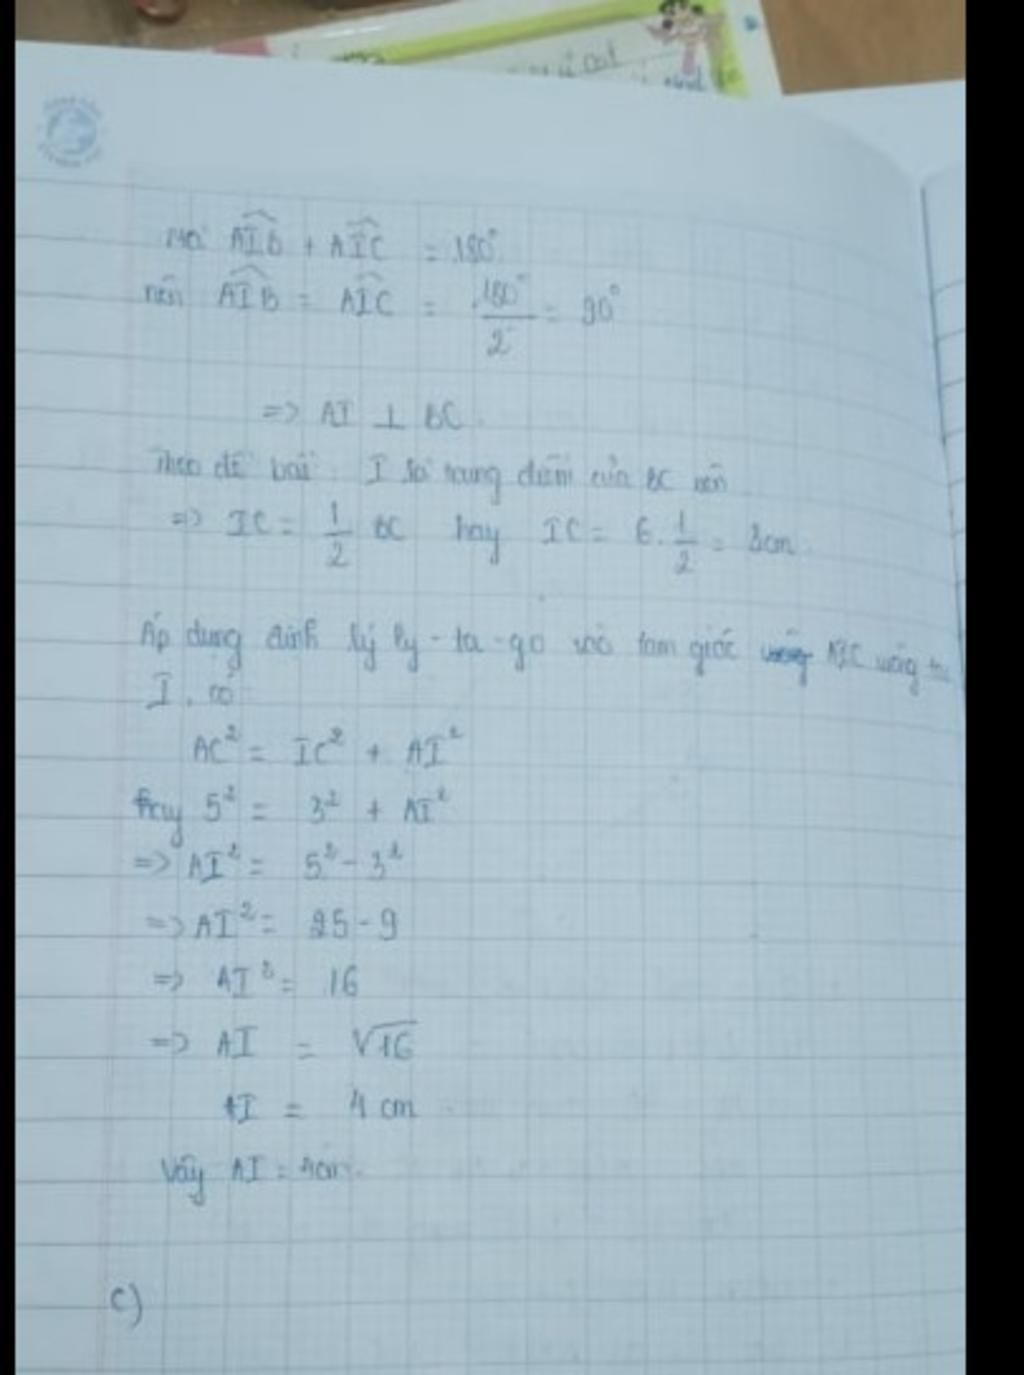 Mà AIB + AIC = 180°
nên AIB = AIC = 180°/2 = 90°
=> AI ⊥ BC.
Theo đề bài I là trung điểm của BC nên
=> IC = 1/2 BC hay IC = 6.1/2 = 3cm.
Áp dụng định lý Py-ta-go vào tam giác AIC vuông
I, có
AC² = IC² + AI²
hay 5² = 3² + AI²
=> AI² = 5² - 3²
=> AI² = 25 - 9
=> AI² = 16
=> AI = √16
AI = 4 cm
Vậy AI = 4cm.
c)